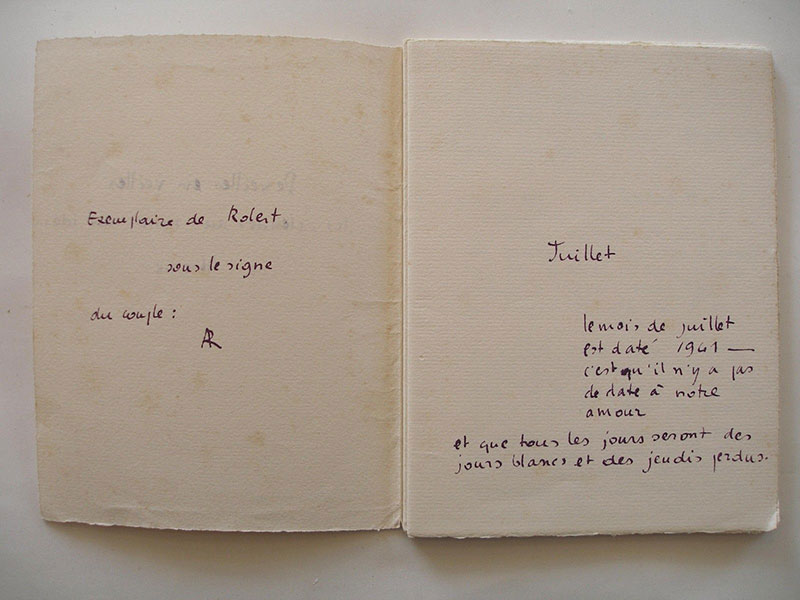 Exemplaire de Robert
sous le signe
du couple :
AR
Juillet
le mois de juillet
est daté 1941 —
c'est qu'il n'y a pas
de date à notre
amour
et que tous les jours seront des
jours blancs et des jeudis perdus.